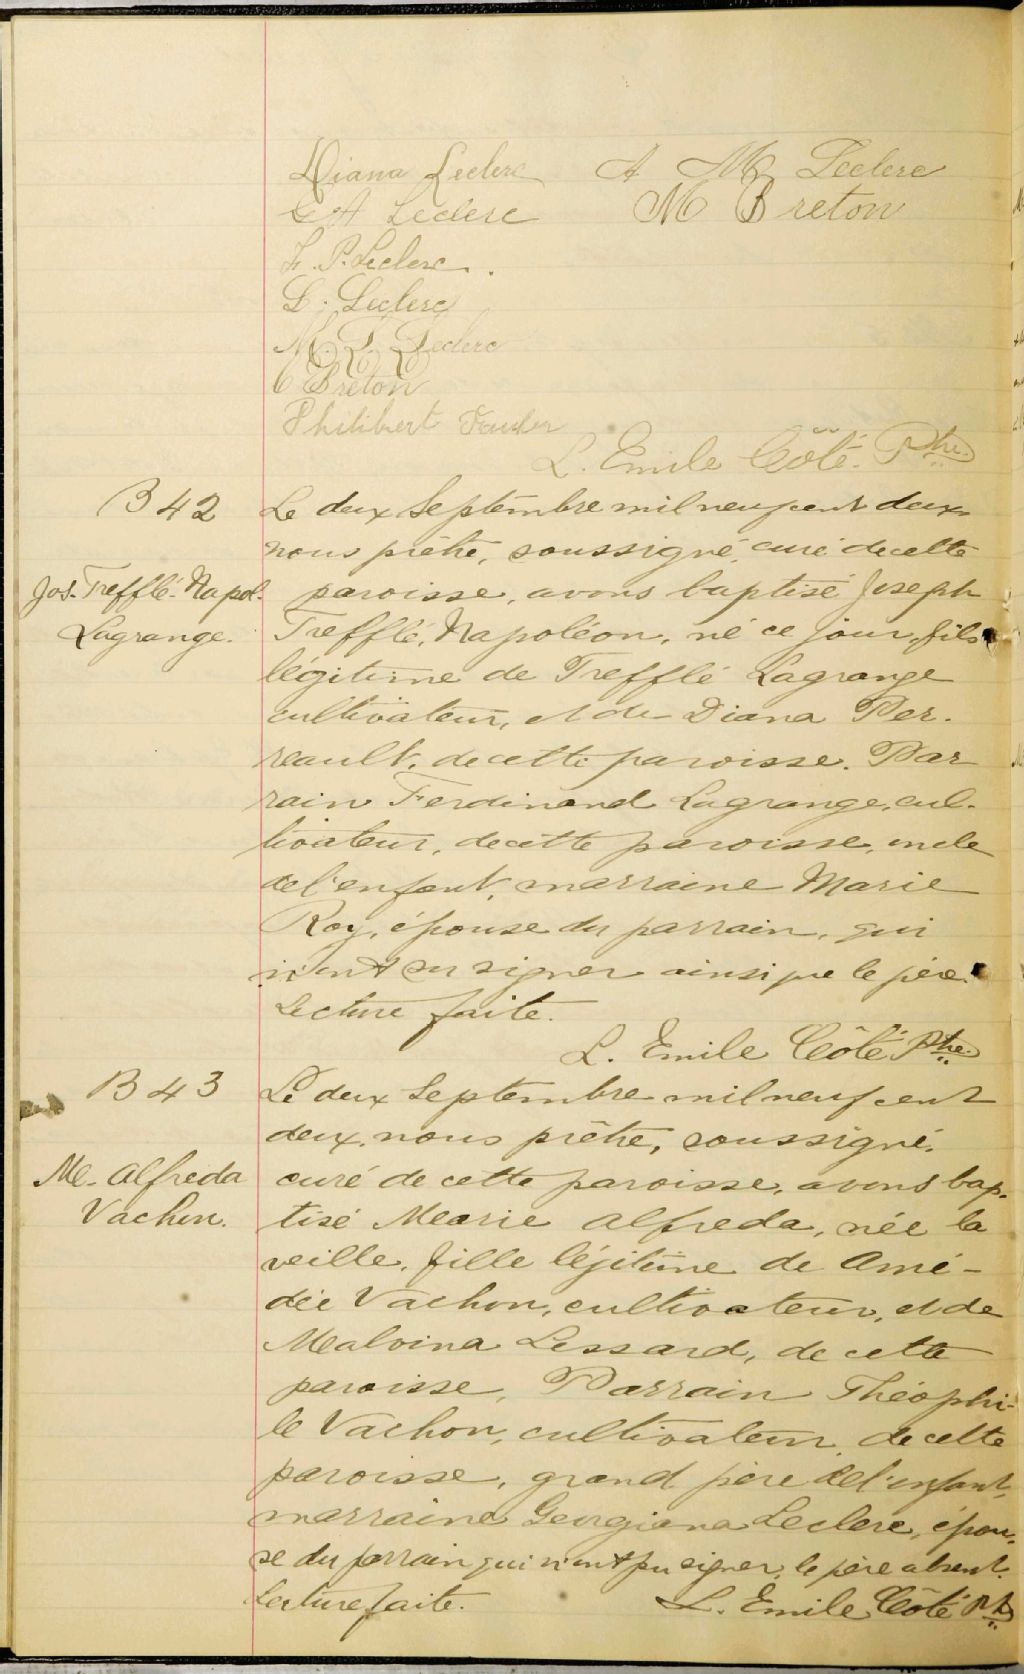 Diana Leclerc
A M Leclerc
G A Leclerc
M Breton
F. P. Leclerc.
L. Leclerc
M. L. Leclerc
C Breton
Philibert
L. Emile Côté. Ptre.
B 42
Jos. Trefflé. Napol.
Lagrange.
Le deux Septembre mil neuf cent deux
nous prêtre, soussigné, curé de cette
paroisse, avons baptisé Joseph
Trefflé, Napoléon, né ce jour, fils
légitime de Trefflé Lagrange
cultivateur, et de Diana Per-
reault, de cette paroisse. Par
rain Ferdinand Lagrange, cul-
tivateur, de cette paroisse, oncle
de l'enfant, marraine Marie
Roy, épouse du parrain, qui
n'ont su signer ainsi que le père.
Lecture faite.
L. Emile Côté Ptre.
B 43
Me. Alfreda
Vachon.
Le deux Septembre mil neuf cent
deux, nous prêtre, soussigné,
curé de cette paroisse, avons bap-
tisé Marie Alfreda, née la
veille, fille légitime de Amé-
dée Vachon, cultivateur, et de
Malvina Lessard, de cette
paroisse, Parrain Théophi-
le Vachon, cultivateur, de cette
paroisse, grand père de l'enfant,
marraine Georgiana Leclerc, épou-
se du parrain qui n'ont pu signer, le père absent.
Lecture faite.
L. Emile Côté Ptre